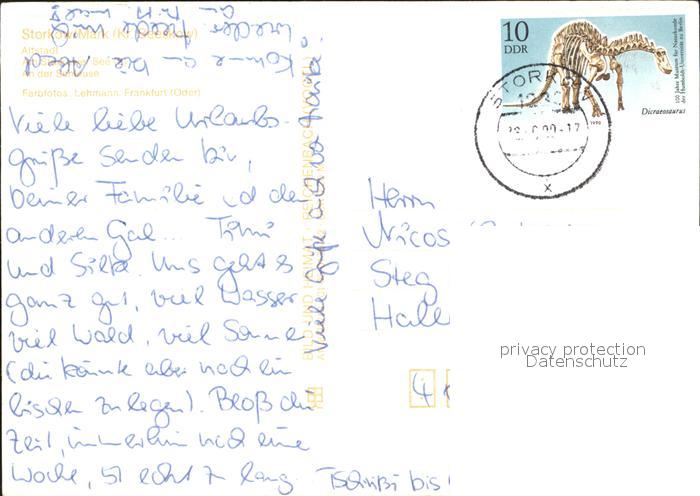 Storkow/Mark (Kr. Beeskow)
Altstadt
An der Schleuse
Farbfotos: Lehmann, Frankfurt (Oder)
Viele liebe Urlaubs-
grüße senden dir,
deiner Familie
anderen Gal... Timi
und Silke. Uns geht's
ganz gut, viel Wasser
viel Wald, viel Sonne
(die könnte aber noch ein
bischen zulegen). Bloß die
Zeit, immerhin noch eine
Woche, ist echt zu lang.
Tschüßi bis
Viele Grüße auch
BILD UND HEIMAT REICHENBACH
10
DDR
100 Jahre Museum für Naturkunde
der Humboldt-Universität zu Berlin
Dicraeosaurus
1990
STORKOW
Herrn
Nicos
Steg
Halle
4
privacy protection
Datenschutz